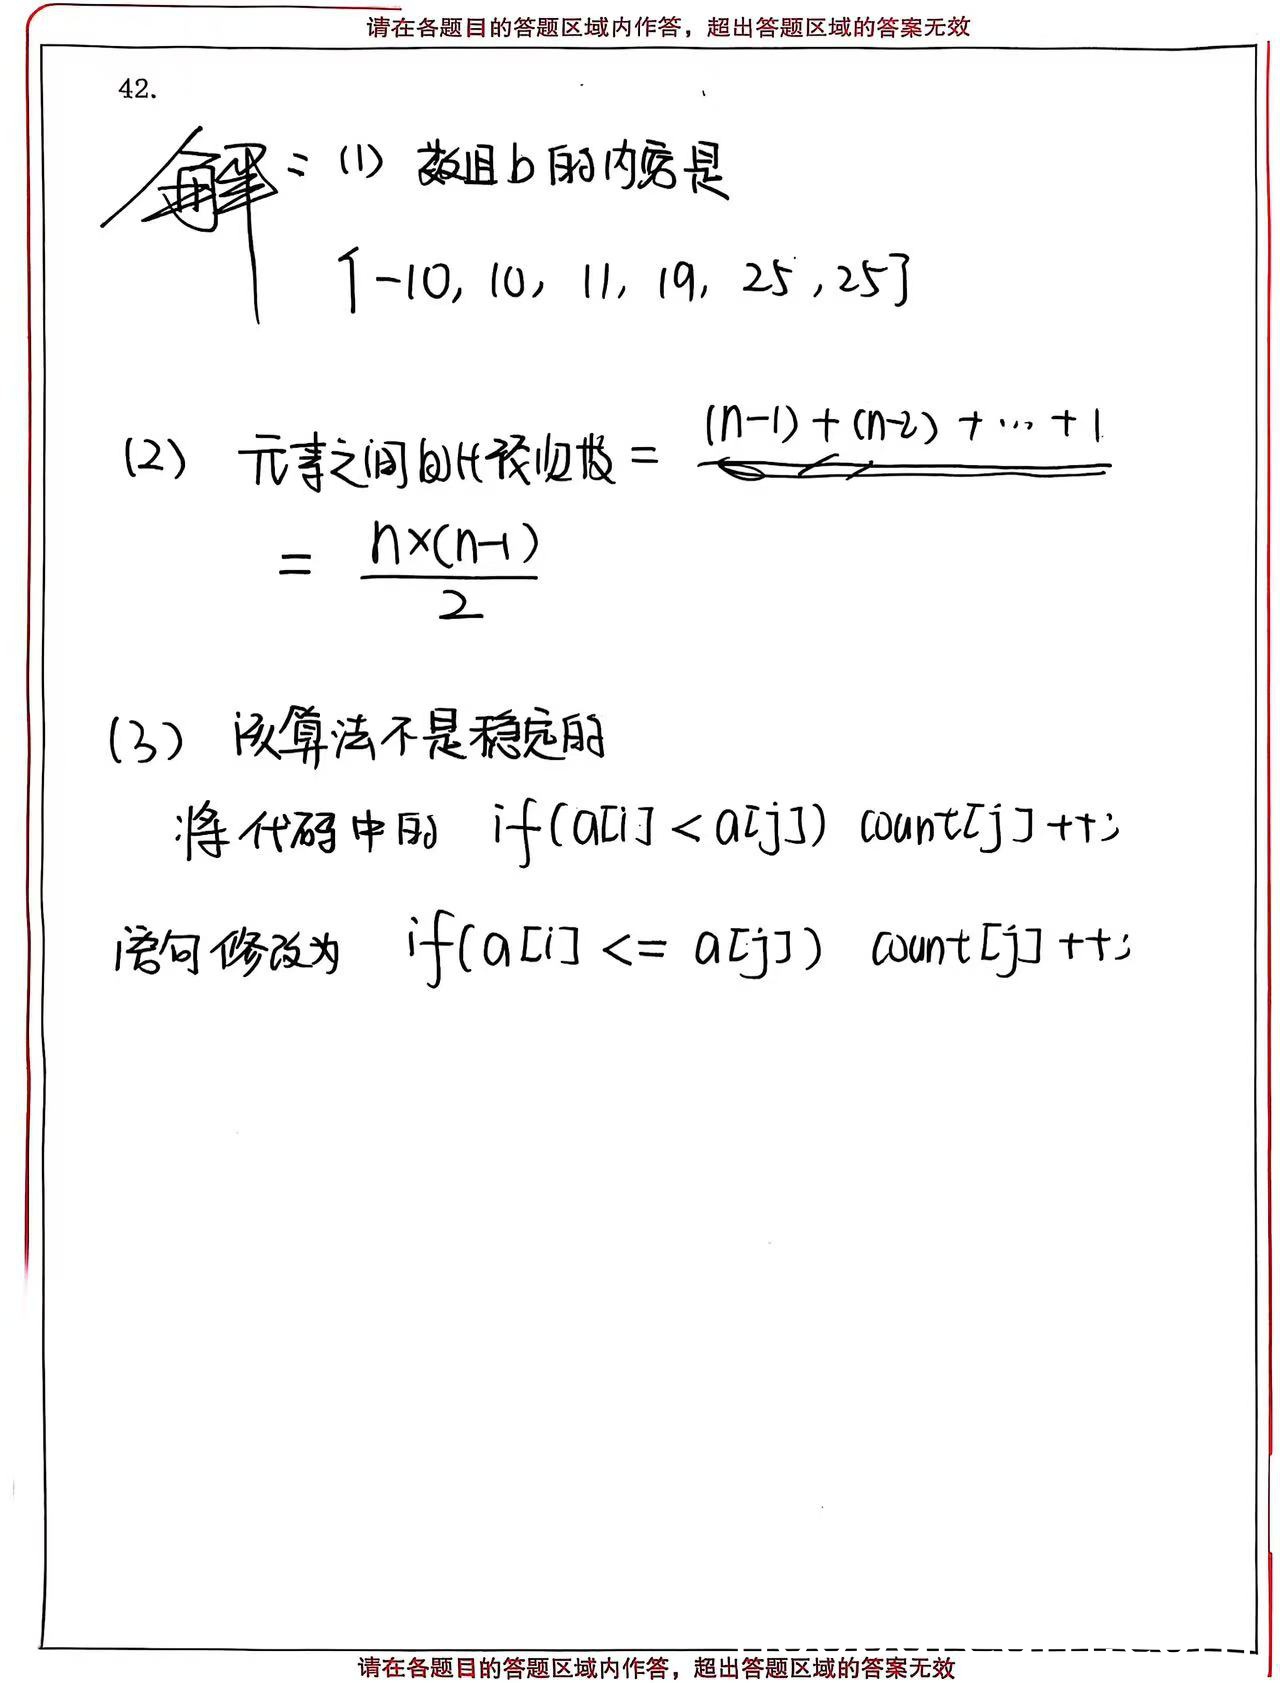 请在各题目的答题区域内作答，超出答题区域的答案无效
42.
解：(1) 数组b的内容是
[-10, 10, 11, 19, 25, 25]
(2) 元素之间的比较次数 = (n-1)+(n-2)+…+1
= n×(n-1)/2
(3) 该算法不是稳定的
将代码中的 if(a[i] < a[j]) count[j]++;
语句修改为 if(a[i] <= a[j]) count[j]++;
请在各题目的答题区域内作答，超出答题区域的答案无效